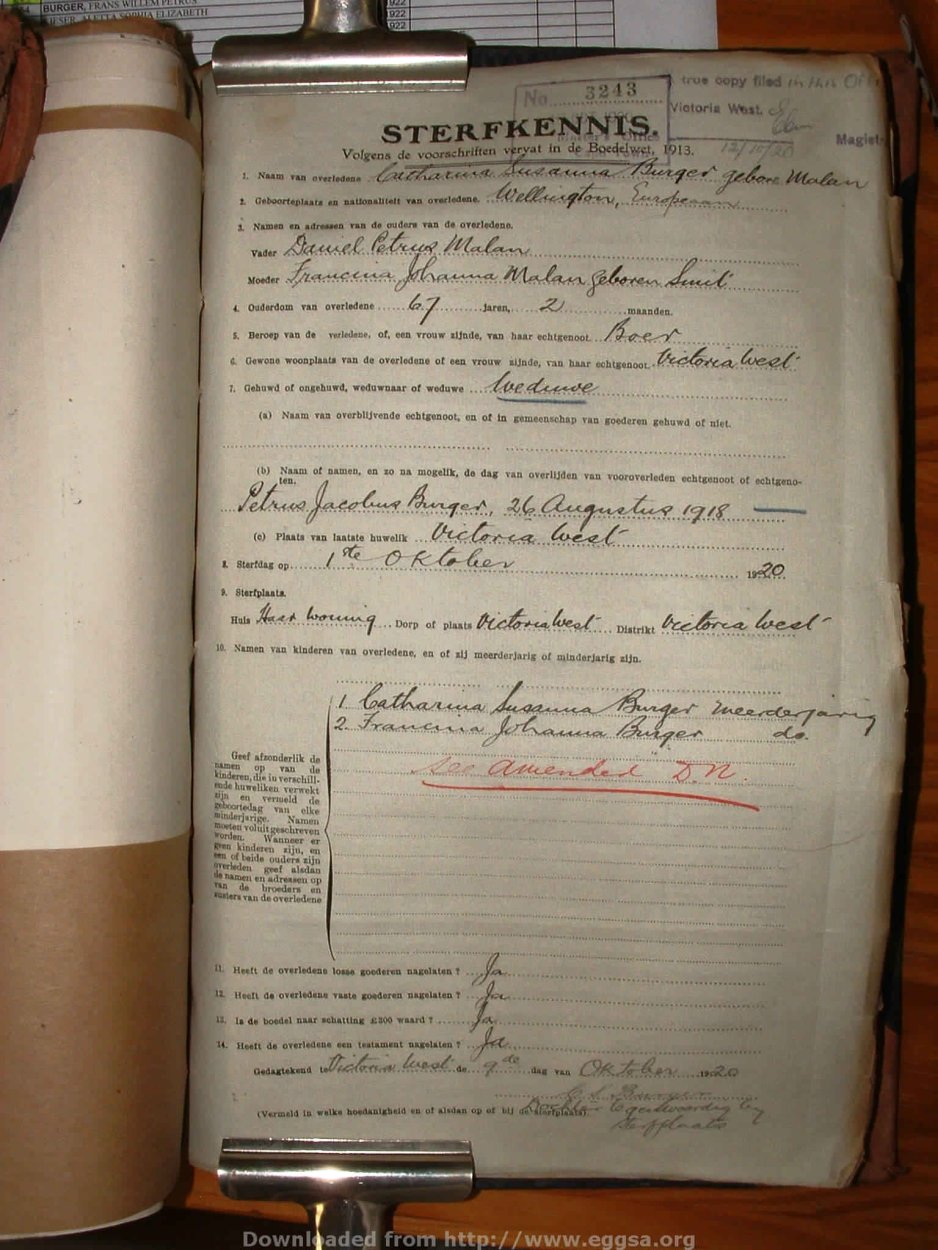 BURGER, FRANS WILLEM PETRUS
ALETTA SOPHIA ELIZABETH
1922
1922
1922
No. 3243
true copy filed in this Office
Victoria West.
12/10/20
Magist
STERFKENNIS.
Volgens de voorschriften vervat in de Boedelwet, 1913.
1. Naam van overledene Catharina Susanna Burger gebore Malan
2. Geboorteplaats en nationaliteit van overledene Wellington, Europeaan
3. Namen en adressen van de ouders van de overledene.
Vader Daniel Petrus Malan
Moeder Francina Johanna Malan geboren Smit
4. Ouderdom van overledene 67 jaren, 2 maanden.
5. Beroep van de verledene, of, een vrouw zijnde, van haar echtgenoot Boer
6. Gewone woonplaats van de overledene of een vrouw zijnde, van haar echtgenoot Victoria West
7. Gehuwd of ongehuwd, weduwnaar of weduwe Weduwe
(a) Naam van overblijvende echtgenoot, en of in gemeenschap van goederen gehuwd of niet.
(b) Naam of namen, en zo na mogelik, de dag van overlijden van vooroverleden echtgenoot of echtgeno-
ten.
Petrus Jacobus Burger, 26 Augustus 1918
(c) Plaats van laatste huwelik Victoria West
8. Sterfdag op 1ste Oktober 1920
9. Sterfplaats.
Huis Haar woning Dorp of plaats Victoria West Distrikt Victoria West
10. Namen van kinderen van overledene, en of zij meerderjarig of minderjarig zijn.
1 Catharina Susanna Burger meerderjarig
2. Francina Johanna Burger do.
see amended D.N.
Geef afzonderlik de
namen op van de
kinderen, die in verschill-
ende huweliken verwekt
zijn en vermeld de
geboortedag van elke
minderjarige. Namen
moeten voluit geschreven
worden. Wanneer er
geen kinderen zijn, en
een of beide ouders zijn
overleden geef alsdan
de namen en adressen op
van de broeders en
susters van de overledene
11. Heeft de overledene losse goederen nagelaten? Ja
12. Heeft de overledene vaste goederen nagelaten? Ja
13. Is de boedel naar schatting £300 waard? Ja
14. Heeft de overledene een testament nagelaten? Ja
Gedagtekend te Victoria West de 9de dag van Oktober 1920
C. S. Burger
(Vermeld in welke hoedanigheid en of alsdan op of bij de sterfplaats). Dochter tegenwoordig by
sterfplaats
Downloaded from http://www.eggsa.org